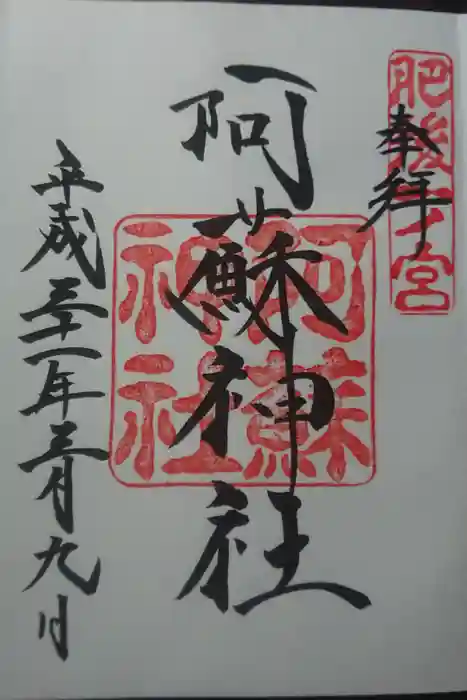 肥後一宮
奉拝
阿蘇神社
阿蘇神社
平成三十一年三月九日